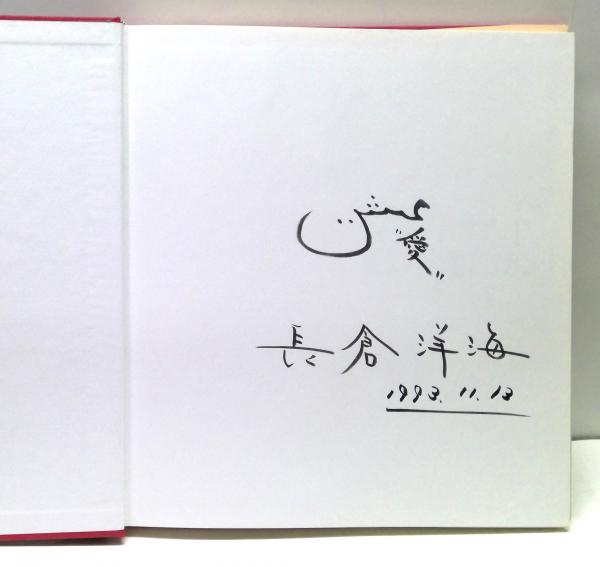 "愛"
長倉洋海
1993.11.13